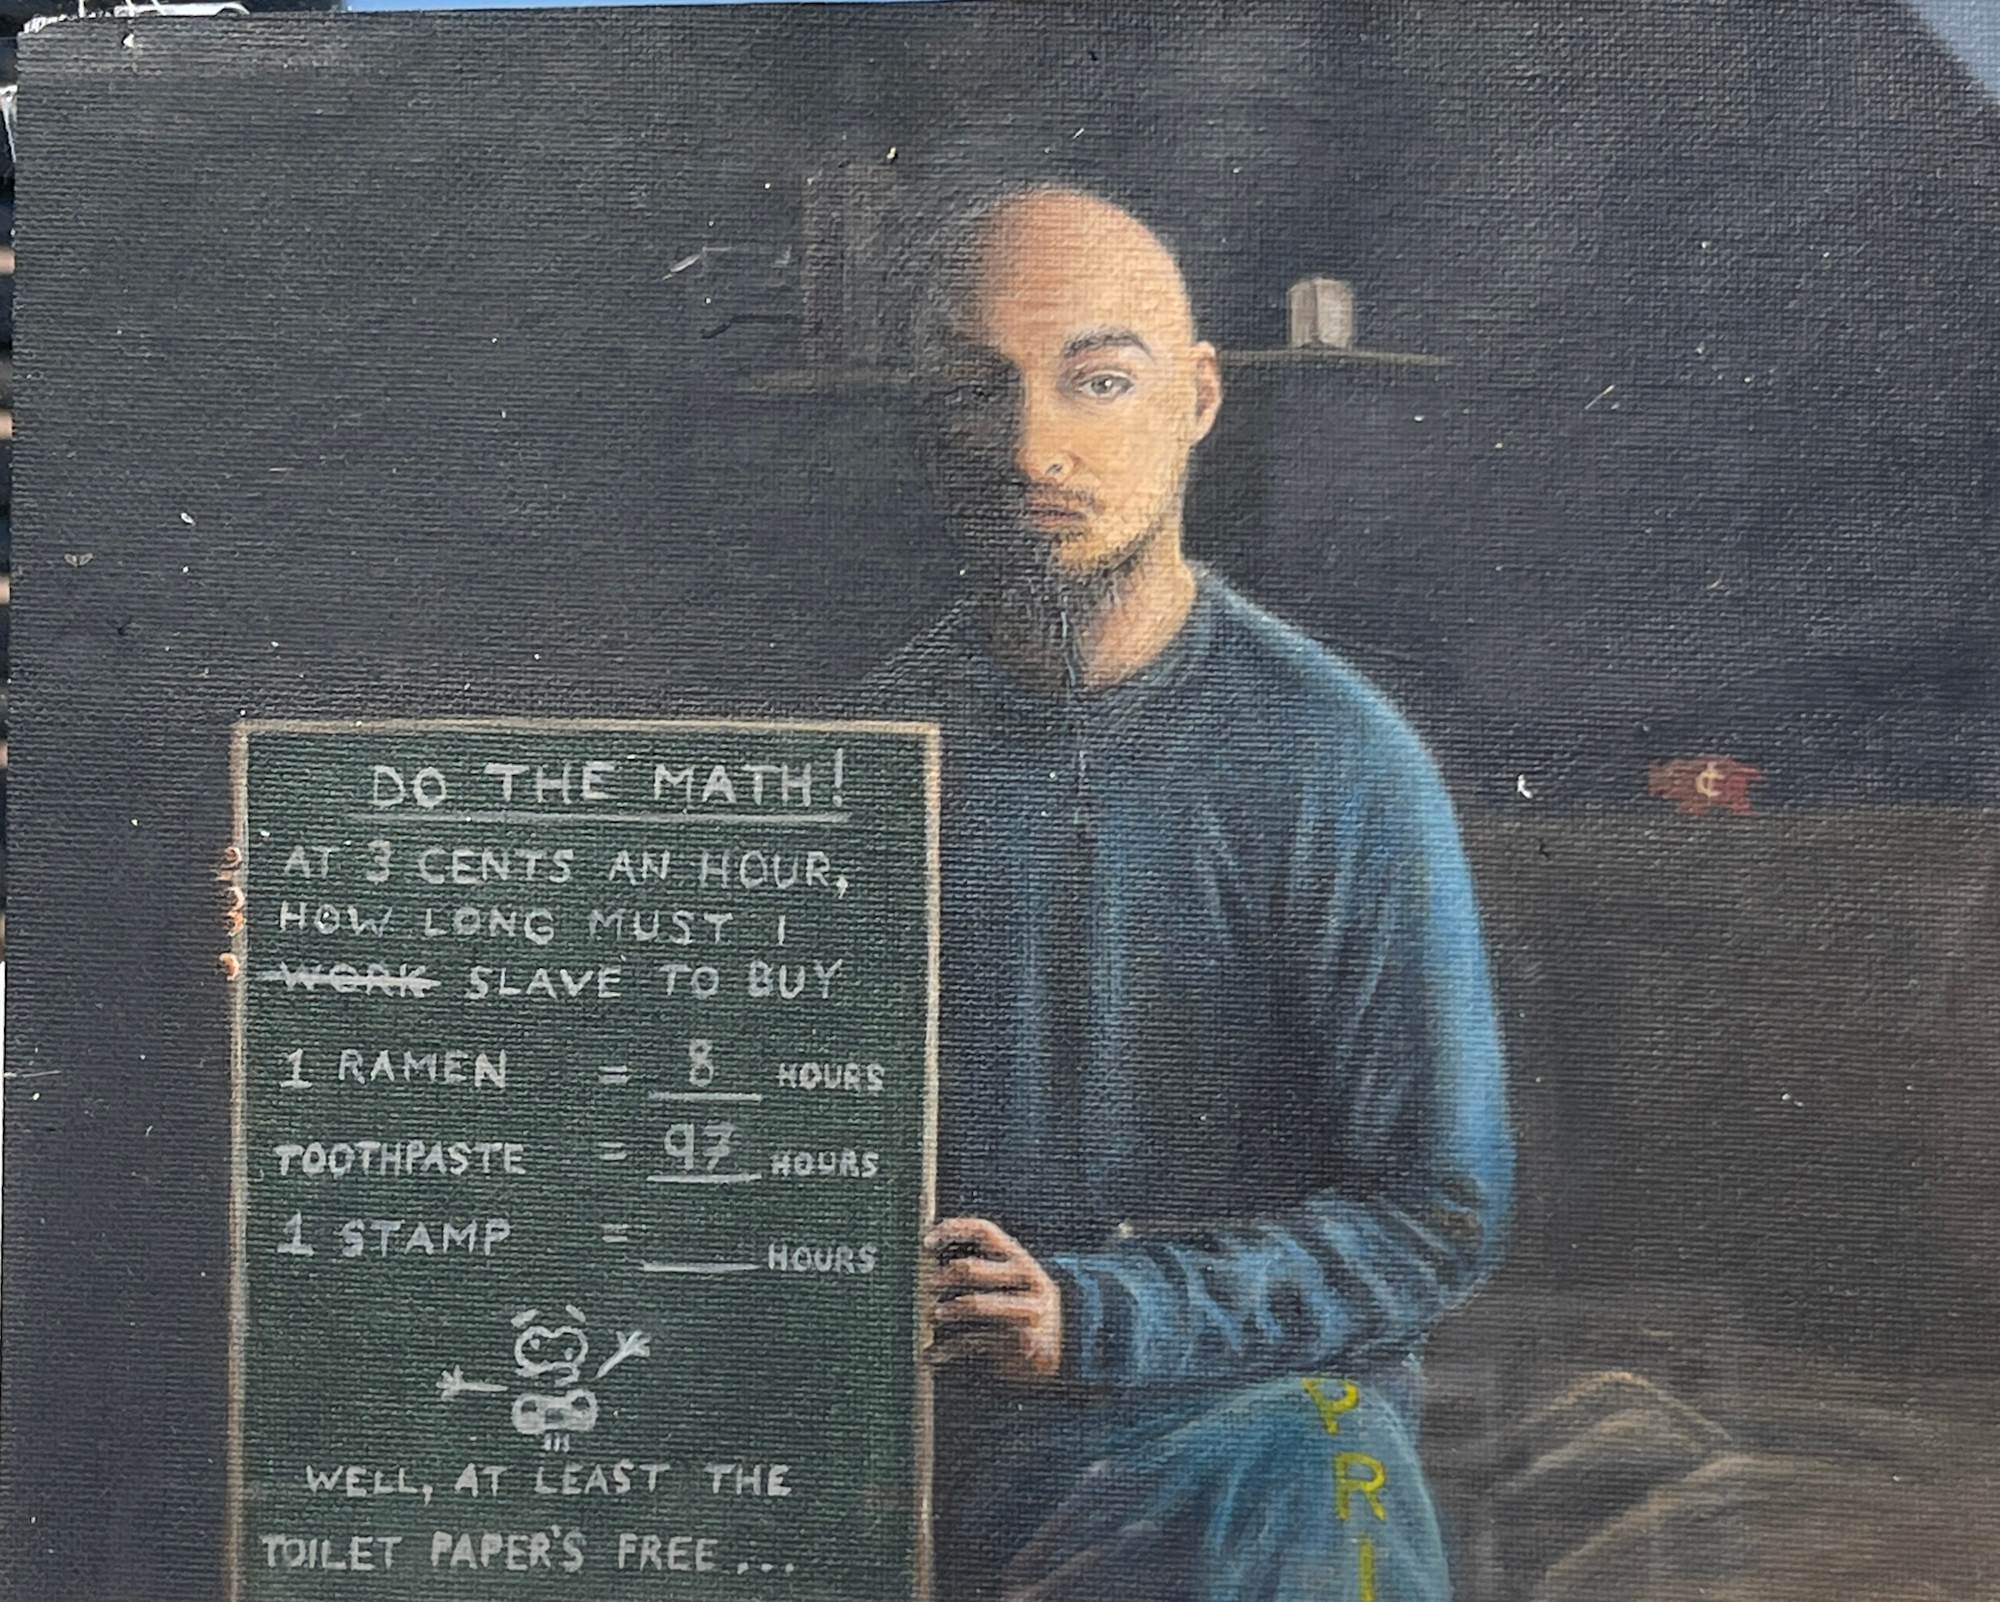 DO THE MATH!
AT 3 CENTS AN HOUR,
HOW LONG MUST I
WORK SLAVE TO BUY
1 RAMEN = 8 HOURS
TOOTHPASTE = 97 HOURS
1 STAMP = ___ HOURS
WELL, AT LEAST THE
TOILET PAPER'S FREE...
¢
PRI